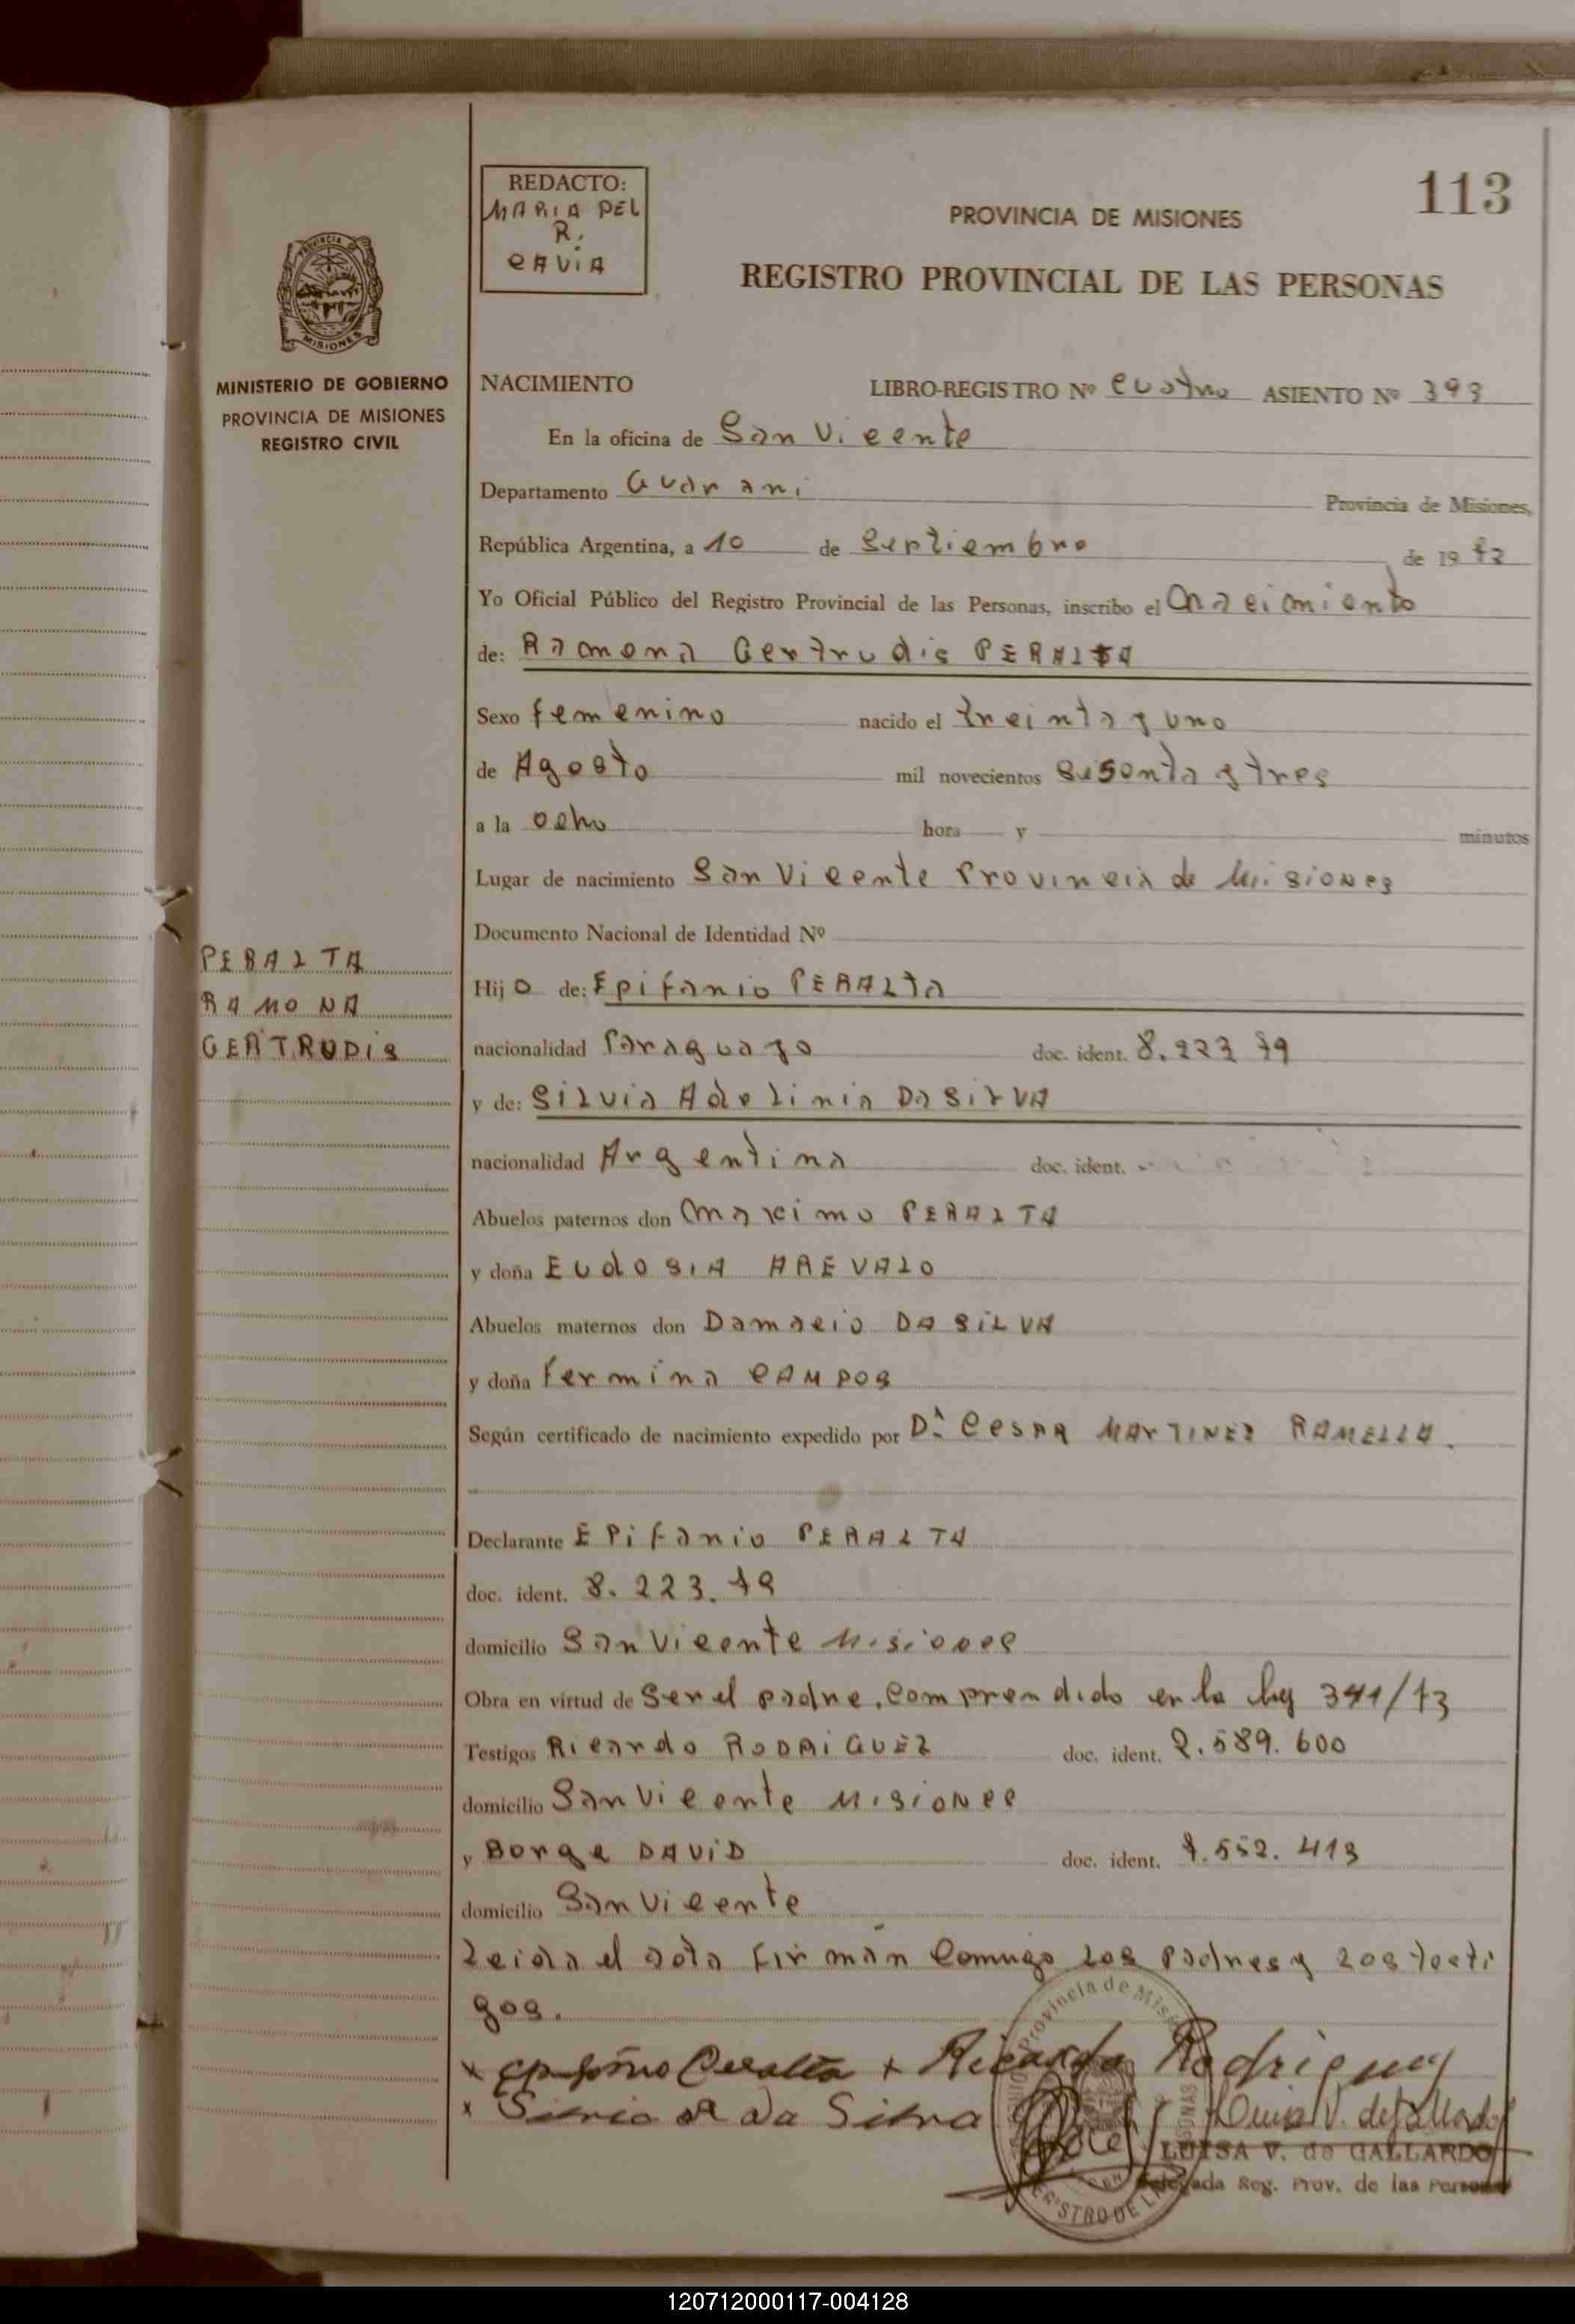 113
REDACTO:
MARIA DEL
R.
CAVIA
PROVINCIA DE MISIONES
REGISTRO PROVINCIAL DE LAS PERSONAS
PROVINCIA DE
MISIONES
MINISTERIO DE GOBIERNO
PROVINCIA DE MISIONES
REGISTRO CIVIL
NACIMIENTO LIBRO-REGISTRO Nº cuatro ASIENTO Nº 393
En la oficina de San Vicente
Departamento Guarani Provincia de Misiones,
República Argentina, a 10 de Septiembre de 19 73
Yo Oficial Público del Registro Provincial de las Personas, inscribo el nacimiento
de: Ramona Gertrudis PERALTA
Sexo femenino nacido el treinta y uno
de Agosto mil novecientos sesenta y tres
a la ocho hora y minutos
Lugar de nacimiento San Vicente Provincia de Misiones
Documento Nacional de Identidad Nº
PERALTA
RAMONA
GERTRUDIS
Hijo de: Epifanio PERALTA
nacionalidad Paraguayo doc. ident. 8.223 79
y de: Silvia Adelinia DA SILVA
nacionalidad Argentina doc. ident.
Abuelos paternos don Maximo PERALTA
y doña EUdOSIA AREVALO
Abuelos maternos don Damacio DA SILVA
y doña Fermina CAMPOS
Según certificado de nacimiento expedido por Dr. Cesar MARTINEZ RAMELLA.
Declarante EPifanio PERALTA
doc. ident. 8.223.79
domicilio San Vicente Misiones
Obra en virtud de Ser el padre, comprendido en la ley 341/73
Testigos Ricardo RODRIGUEZ doc. ident. 2.589.600
domicilio San Vicente Misiones
y Borge DAVID doc. ident. 7.552.413
domicilio San Vicente
Leida el acta firman conmigo los padres y los testi
gos.
x Epifanio Peralta x Ricardo Rodriguez
x Silvia A Da Silva Luisa V. de Gallardo
LUISA V. de GALLARDO
Delegada Reg. Prov. de las Personas
120712000117-004128